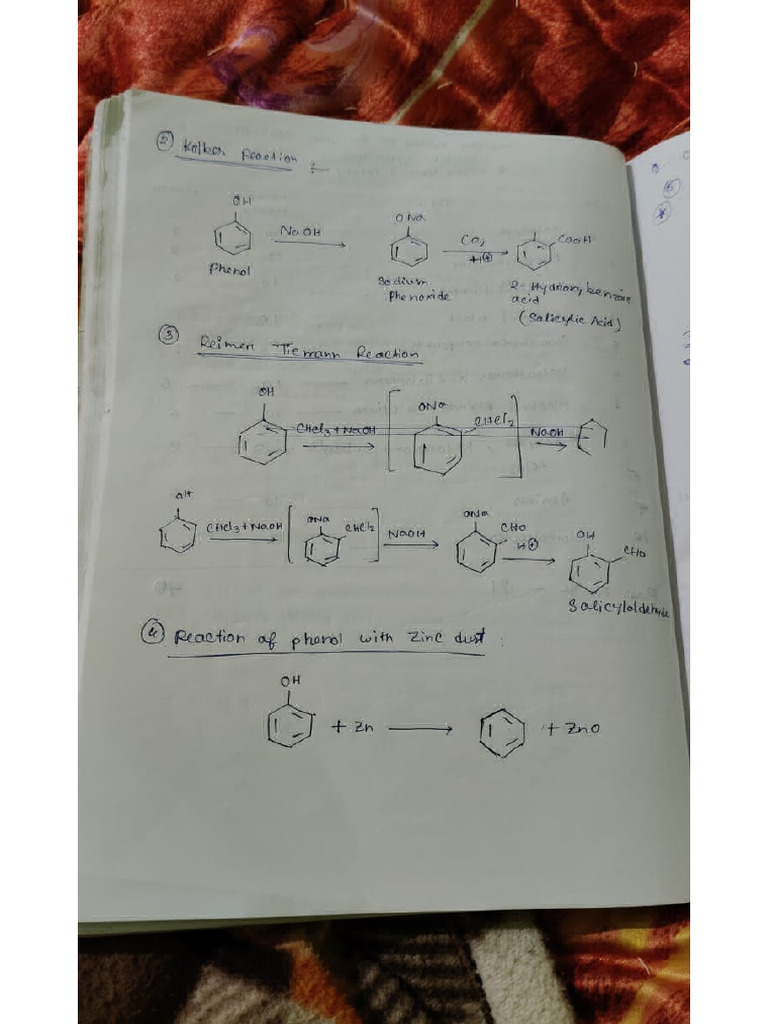 ② Kolbes Reaction :-
OH
NaOH
ONa
CO2
H⊕
COOH
Phenol
Sodium Phenoxide
2-Hydroxy benzoic acid
(Salicylic Acid)
③ Reimer Tiemann Reaction
OH
CHCl3 + NaOH
ONa
CHCl2
NaOH
OH
CHCl3 + NaOH
ONa
CHCl2
NaOH
ONa
CHO
H⊕
OH
CHO
Salicylaldehyde
④ Reaction of phenol with Zinc dust :
OH
+ Zn
+ ZnO